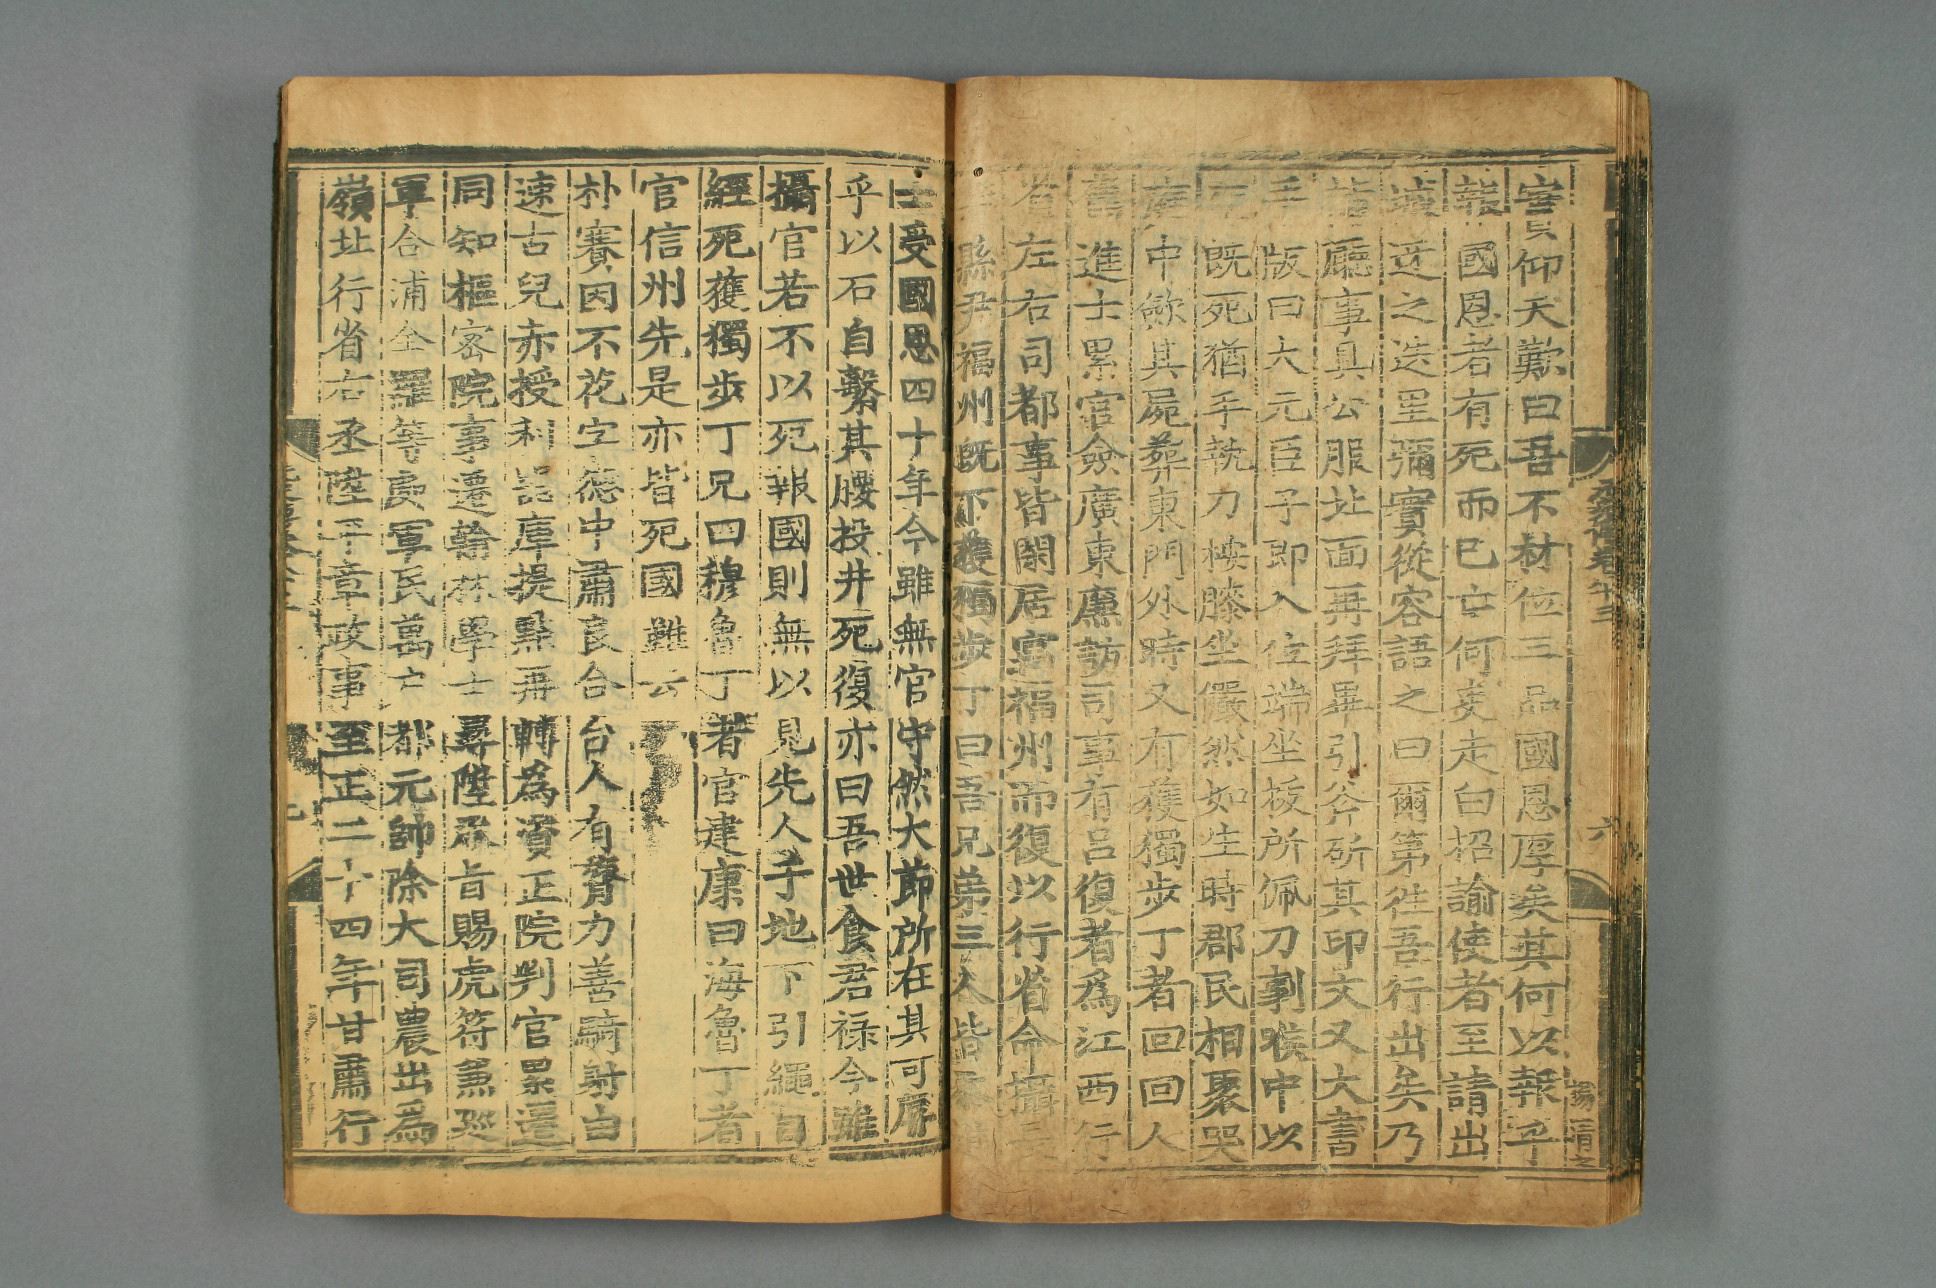 寶仰天歎曰吾不材位三品國恩厚矣其何以報乎
報國恩者有死而已亡何妄走白招諭使者至請出
城迓之迭里彌實從容語之曰爾第往吾行出矣乃
詣廳事具公服北面再拜畢引斧斫其印文又大書
手版曰大元臣子即入位端坐拔所佩刀剚喉中以
死既死猶手執刀按膝坐儼然如生時郡民相聚哭
庭中斂其屍葬東門外時又有獲獨步丁者回回人
舊進士累官僉廣東廉訪司事有呂復者為江西行
省左右司都事皆閑居寓福州而復以行省命攝長
樂縣尹福州既下獲獨步丁曰吾兄弟三人皆忝進
士受國恩四十年今雖無官守然大節所在其可辱
乎以石自繫其腰投井死復亦曰吾世食君祿今雖
攝官若不以死報國則無以見先人于地下引繩自
經死獲獨步丁兄曰穆魯丁者官建康曰海魯丁者
官信州先是亦皆死國難云
朴賽因不花字德中肅良合台人有膂力善騎射由
速古兒赤授利器庫提點再轉為資正院判官累遷
同知樞密院事遷翰林學士尋陞承旨賜虎符兼巡
軍合浦全羅等處軍民萬户都元帥除大司農出為
嶺北行省右丞陞平章政事至正二十四年甘肅行
六